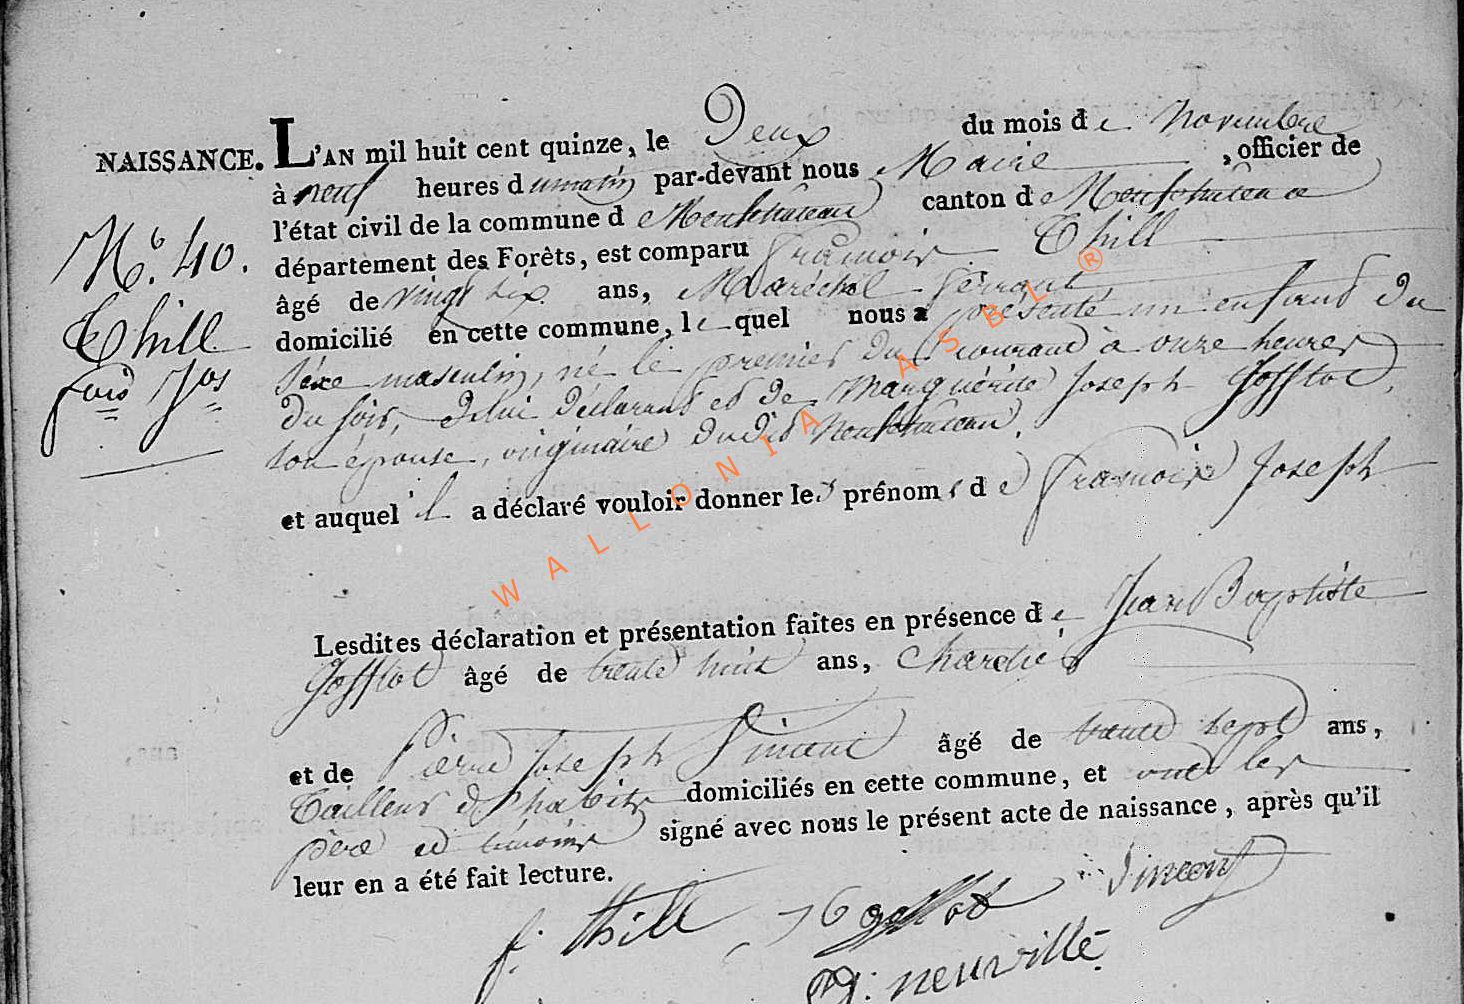 NAISSANCE. L'AN mil huit cent quinze, le Deux du mois de Novembre
à neuf heures du matin par-devant nous Maire , officier de
l'état civil de la commune d Neufchateau canton de Neufchateau
département des Forêts, est comparu Francois Thill
âgé de vingt six ans, Maréchal férrant,
domicilié en cette commune, le quel nous a présenté un enfant du
séxe masculin, né le premier du courant à onze heures
du soir, de lui déclarant et de Marguérite Joseph Gofflot,
son épouse, originaire dudit Neufchateau,
et auquel il a déclaré vouloir donner les prénoms de Francois Joseph
No. 40.
Thill
fois Jos
Lesdites déclaration et présentation faites en présence de Jean Baptiste
Gofflot âgé de trente huit ans,
et de Pierre Joseph Simeont âgé de trente sept ans,
Tailleur d'habits domiciliés en cette commune, et ont les
père et témoins signé avec nous le présent acte de naissance, après qu'il
leur en a été fait lecture.
f. thill Simeont
neuville
WALLONIA ASBL ®